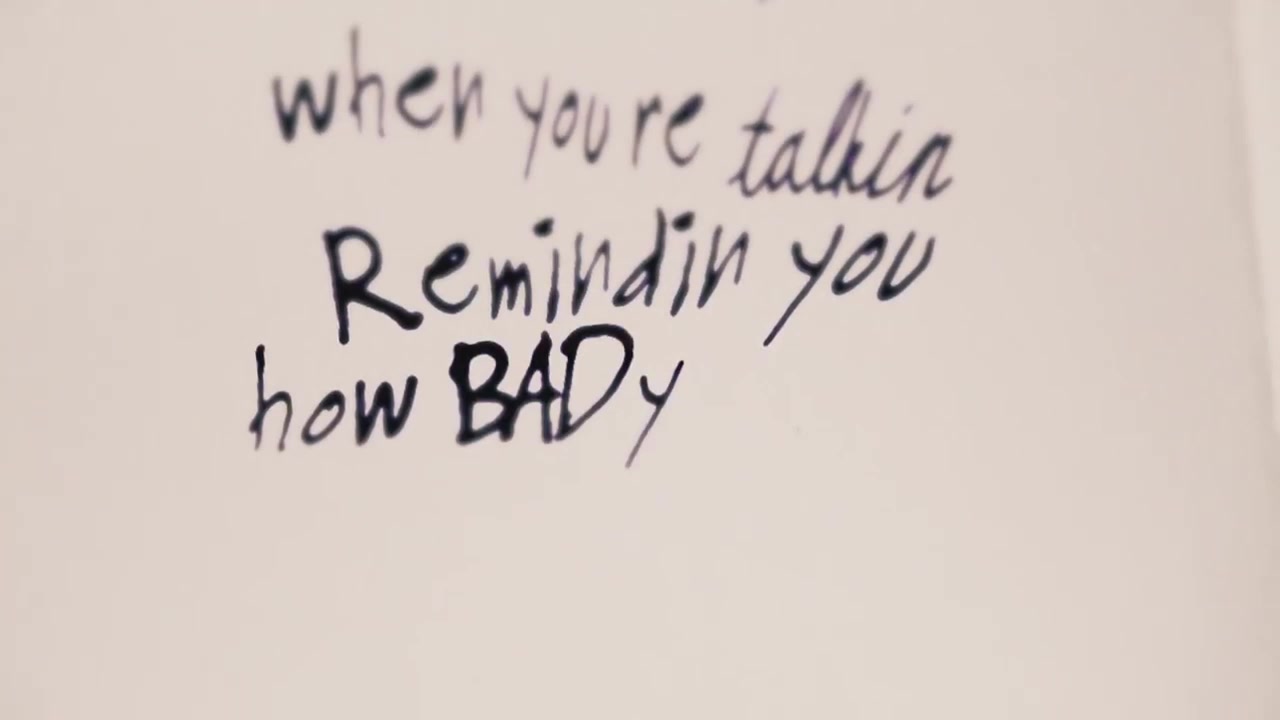 when you re talkin
Remindin you
how BADy